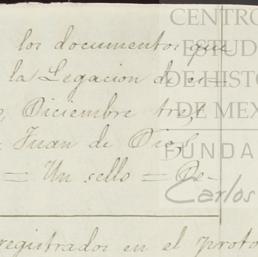 los documentos que
la Legacion de es-
Diciembre trez
Juan de Dios
= Un sello = De-
registrados en el proto
CENTRO
ESTUD
DE HISTO
DE MEX
FUNDA
Carlos